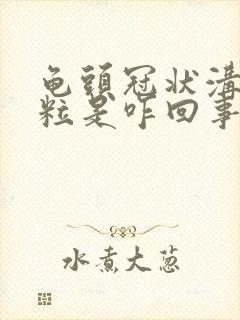 龟頭冠状溝
粒是咋回事
水煮大葱